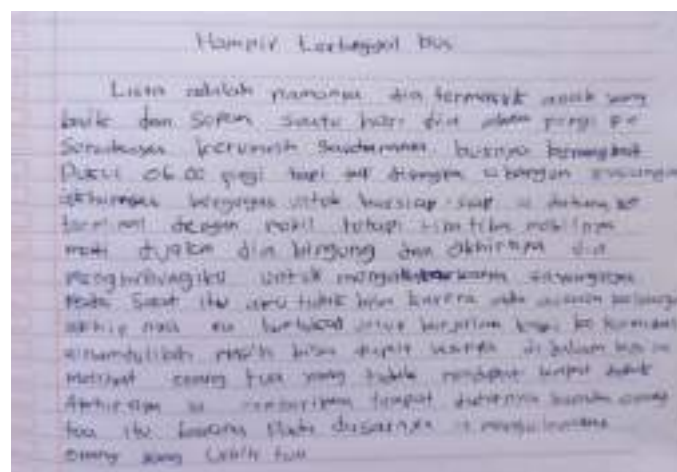 Hampir tertinggal bus
Lista adalah namanya dia termasuk anak yang
baik dan Sopan Suatu hari dia akan pergi ke
Surabaya kerumah Saudaranya busnya berangkat
Pukul 06.00 pagi tapi
akhirnya bergegas untuk bersiap siap ia datang ke
terminal dengan mobil tetapi tiba tiba mobilnya
mati dijalan dia bingung dan akhirnya dia
menghubungiku untuk
Pada Saat itu aku tidak bisa karena ada acara keluarga
akhirnya ia untuk berjalan kaki ke terminal
alhamdulillah masih bisa di dalam bus ia
melihat orang tua yang tidak mendapat tempat duduk
Akhirnya ia memberikan tempat duduknya kepada orang
tua itu karena Pada dasarnya ia
orang yang Lebih tua